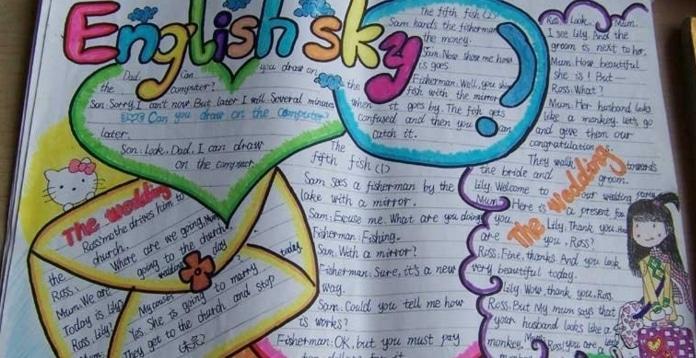 English sky
Dad. Can you draw on
the computer?
Son: Sorry, I can't now. But later I will. Several minutes
later.
Can you draw on the computer?
Son: Look, Dad. I can draw
on the computer.
The wedding
Ross' mother drives him to
the church.
Ross: Where are we going, Mum
Mum: We are going to the church.
Today is Lily wedding day
Ross: Lily?
Mum: My cousin
Yes. She is going to marry today.
They get to the church and stop
The
fifth fish (1)
Sam sees a fisherman by the
lake with a mirror.
Sam: Excuse me. What are you doing
Fisherman: Fishing.
Sam: With a mirror?
Fisherman: Sure, it's a new
way.
Sam: Could you tell me how
is works?
Fisherman: OK, but you must pay
The fifth fish (2)
Sam hands the fisherman
the money.
Sam: Now show me how
is goes.
Fisherman: Well, you shi
the fish with the mirror
when it goes by. The fish gets
confused and then you can
catch it.
Ross: Look, Mum.
I see Lily. And the
groom is next to her.
Mum: How beautiful
she is! But
Ross: What?
Mum: Her husband looks
like a monkey. Let's go
and give them our
congratulations.
They walk towards
the bride and groom.
The wedding
Lily: Welcome to our wedding party
Mum: Here is a present for
you.
Lily: Thank you. How
are you, Ross?
Ross: Fine, thanks. And you look
very beautiful today.
Lily: Wow, thank you, Ross.
Ross: But My mum says that
your husband looks like a
monkey.
Mum: Ross, you are